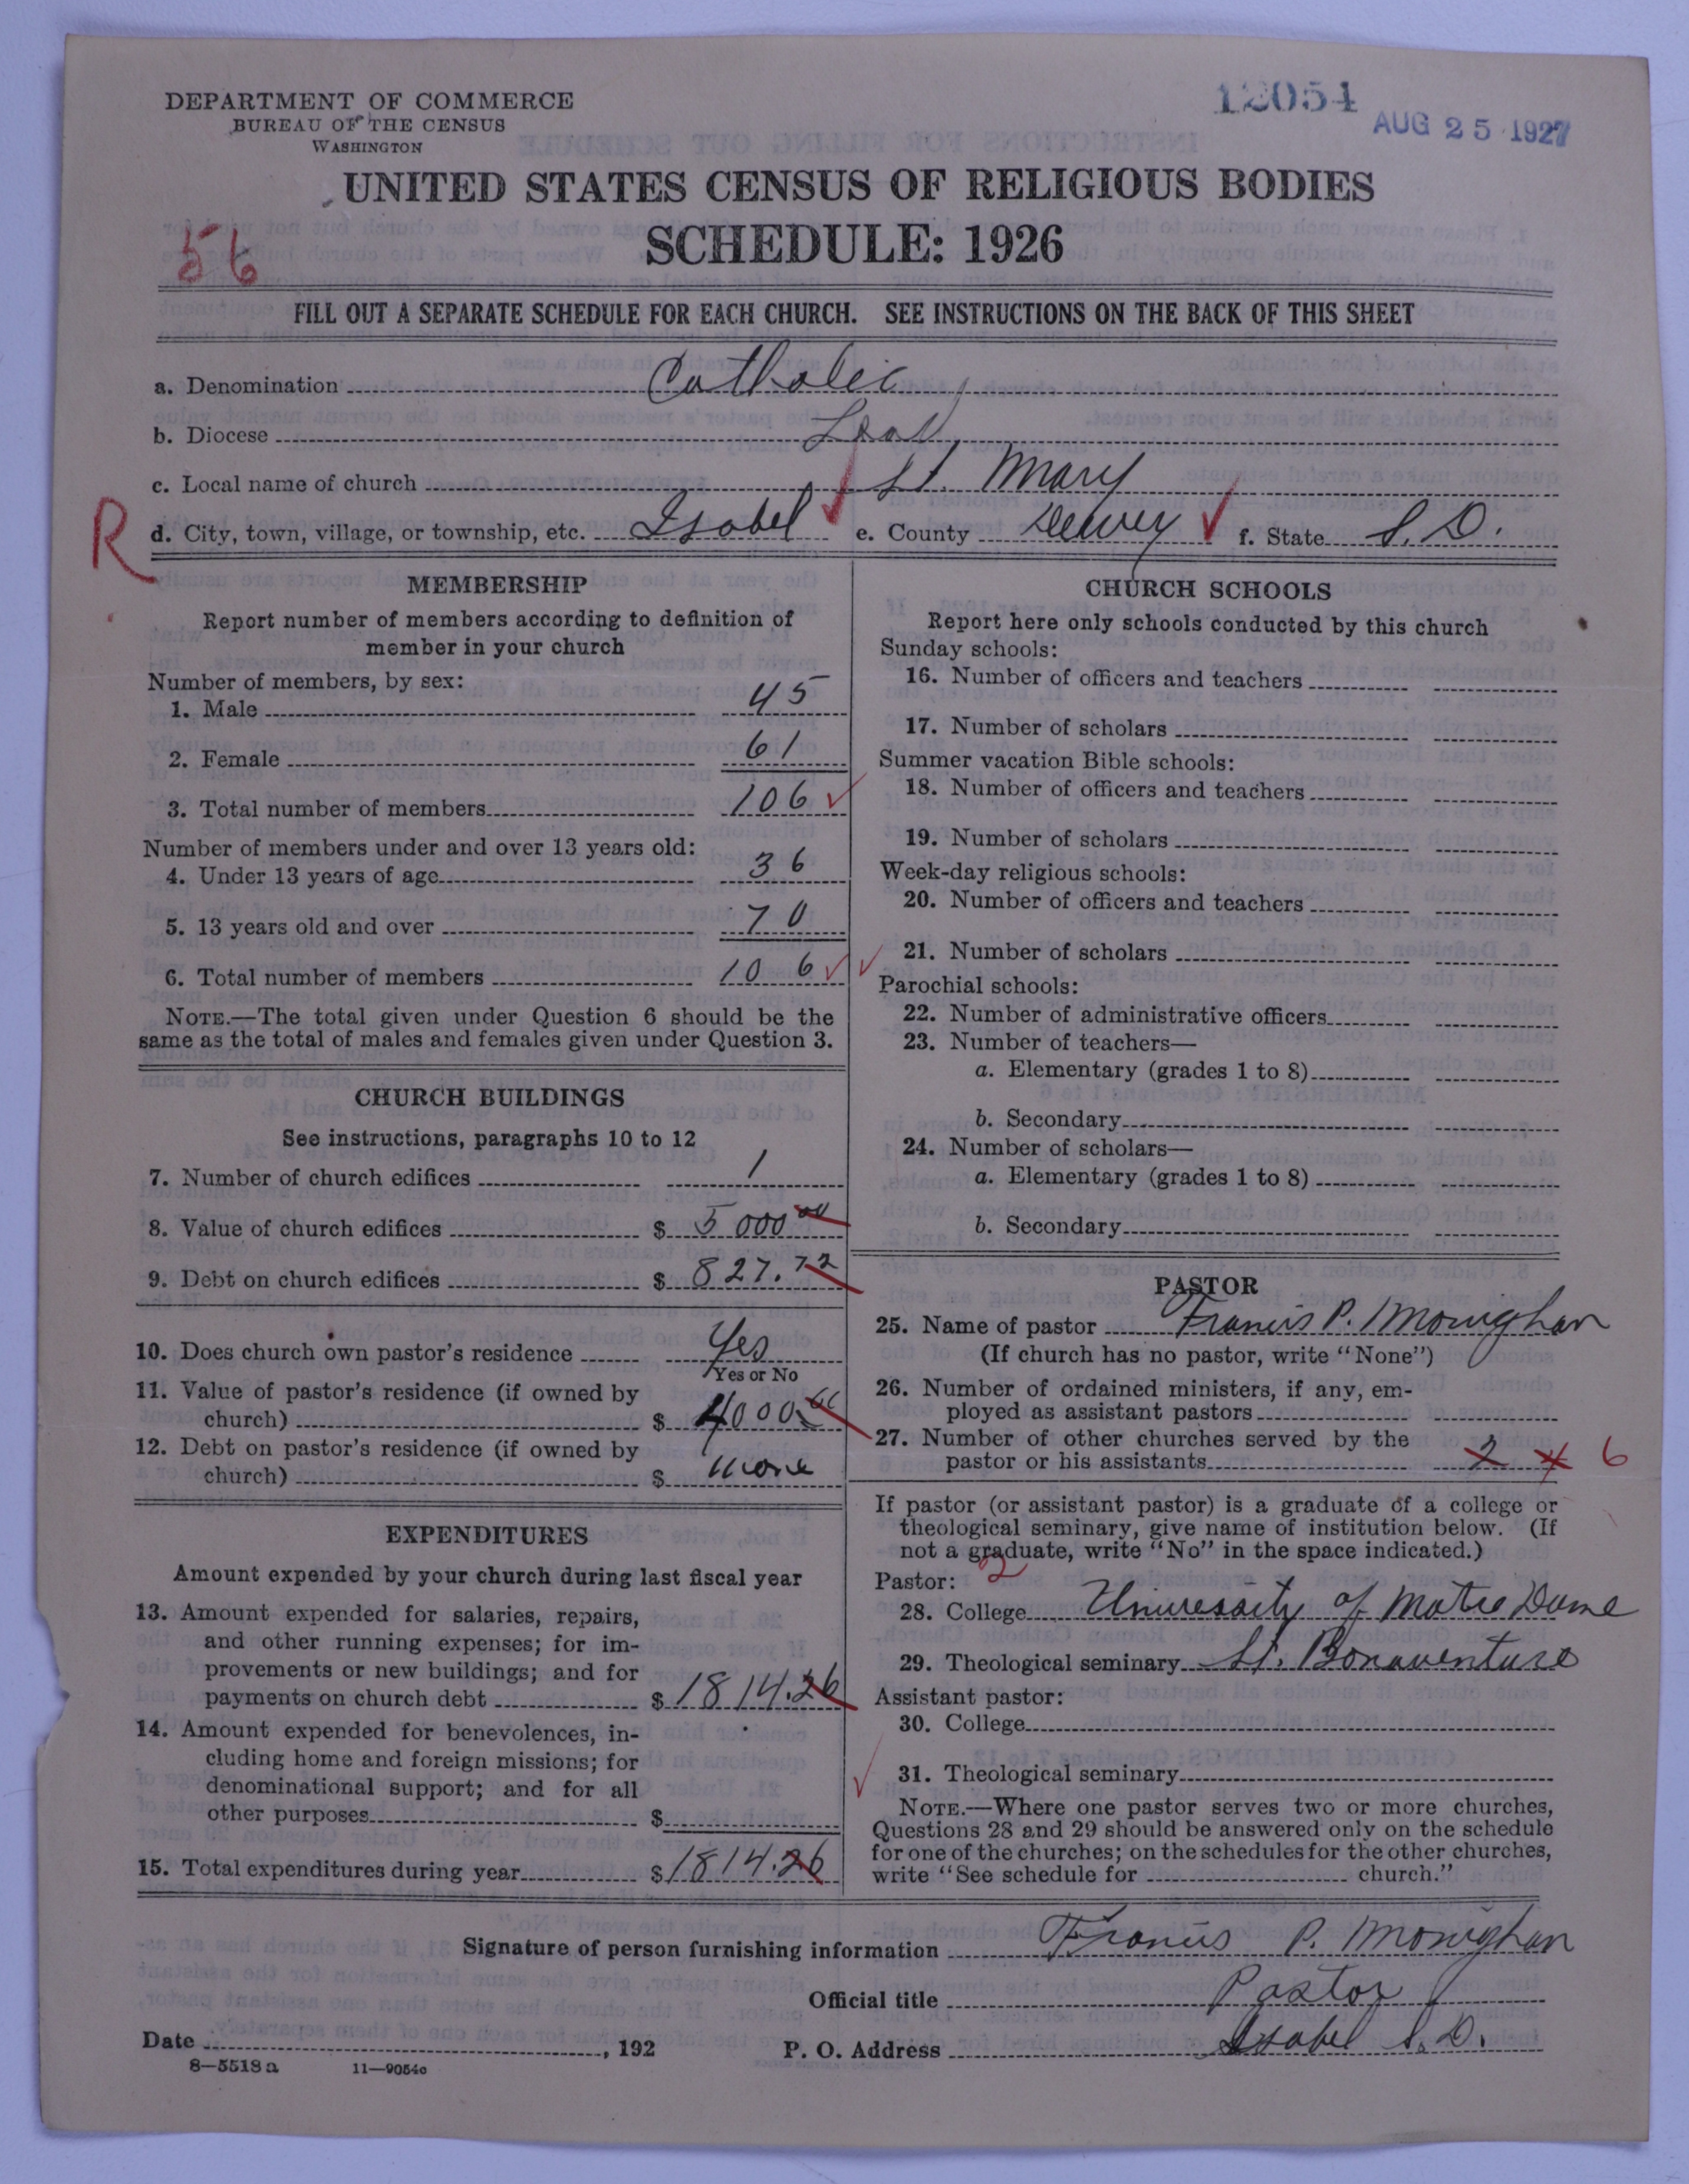 DEPARTMENT OF COMMERCE
BUREAU OF THE CENSUS
WASHINGTON
12054
AUG 25 1927
UNITED STATES CENSUS OF RELIGIOUS BODIES
SCHEDULE: 1926
56
FILL OUT A SEPARATE SCHEDULE FOR EACH CHURCH. SEE INSTRUCTIONS ON THE BACK OF THIS SHEET
a. Denomination Catholic
b. Diocese Lead
c. Local name of church St. Mary
R
d. City, town, village, or township, etc. Isabel e. County Dewey f. State S. D.
MEMBERSHIP
Report number of members according to definition of
member in your church
Number of members, by sex:
1. Male 45
2. Female 61
3. Total number of members 106
Number of members under and over 13 years old:
4. Under 13 years of age 36
5. 13 years old and over 70
6. Total number of members 106
NOTE.—The total given under Question 6 should be the
same as the total of males and females given under Question 3.
CHURCH BUILDINGS
See instructions, paragraphs 10 to 12
7. Number of church edifices 1
8. Value of church edifices $ 5000 00
9. Debt on church edifices $ 827.72
10. Does church own pastor's residence Yes
Yes or No
11. Value of pastor's residence (if owned by
church) $ 4000 00
12. Debt on pastor's residence (if owned by
church) $ none
EXPENDITURES
Amount expended by your church during last fiscal year
13. Amount expended for salaries, repairs,
and other running expenses; for im-
provements or new buildings; and for
payments on church debt $ 1814.26
14. Amount expended for benevolences, in-
cluding home and foreign missions; for
denominational support; and for all
other purposes $
15. Total expenditures during year $ 1814.26
CHURCH SCHOOLS
Report here only schools conducted by this church
Sunday schools:
16. Number of officers and teachers
17. Number of scholars
Summer vacation Bible schools:
18. Number of officers and teachers
19. Number of scholars
Week-day religious schools:
20. Number of officers and teachers
21. Number of scholars
Parochial schools:
22. Number of administrative officers
23. Number of teachers—
a. Elementary (grades 1 to 8)
b. Secondary
24. Number of scholars—
a. Elementary (grades 1 to 8)
b. Secondary
PASTOR
25. Name of pastor Francis P. Monighan
(If church has no pastor, write "None")
26. Number of ordained ministers, if any, em-
ployed as assistant pastors
27. Number of other churches served by the
pastor or his assistants 2 4 6
If pastor (or assistant pastor) is a graduate of a college or
theological seminary, give name of institution below. (If
not a graduate, write "No" in the space indicated.)
Pastor: 2
28. College University of Notre Dame
29. Theological seminary St. Bonaventure
Assistant pastor:
30. College
31. Theological seminary
NOTE.—Where one pastor serves two or more churches,
Questions 28 and 29 should be answered only on the schedule
for one of the churches; on the schedules for the other churches,
write "See schedule for church."
Signature of person furnishing information Francis P. Monighan
Official title Pastor
Date , 192 P. O. Address Isabel S. D.
8—5518a 11—9054c